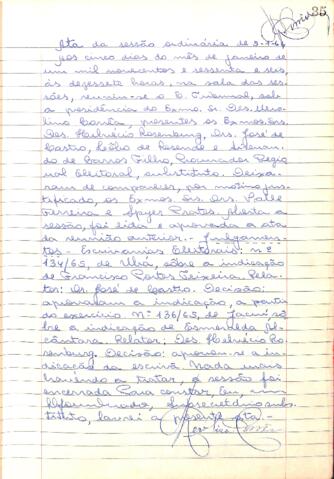 35
Ata da sessão ordinária de 5-1-66
Aos cinco dias do mês de janeiro de
um mil novecentos e sessenta e seis,
às dezessete horas, na sala das ses-
sões, reuniu-se o E. Tribunal, sob
a presidência do Exmo. Sr. Des.
lino Corrêa, presentes os Exmos. Srs.
Des. Helvécio Rosenburg, Drs. José de
Castro, Cóblo de Resende e
do de Barros Filho, Procurador Regio
nal Eleitoral, substituto. Deixa-
ram de comparecer, por motivo jus-
tificado, os Exmos. Srs. Drs.
Ferreira e Spyer Prates. Aberta a
sessão, foi lida e aprovada a ata
da reunião anterior. - Julgamen-
tos - Escrivanias Eleitorais: nº
134/65, de Ubá, sôbre a indicação
de Francisco Pontes Teixeira. Rela-
tor: Dr. José de Castro. Decisão:
aprovaram a indicação, a partir
do exercício. Nº 136/65, de Jacuí, sô
bre a indicação de Esmeralda Al-
cântara. Relator: Des. Helvécio Ro-
senburg. Decisão: aprovou-se a in-
dicação da escrivã. Nada mais
havendo a tratar, a sessão foi
encerrada. Para constar, eu,
secretário subs-
tituto, lavrei a presente ata. -